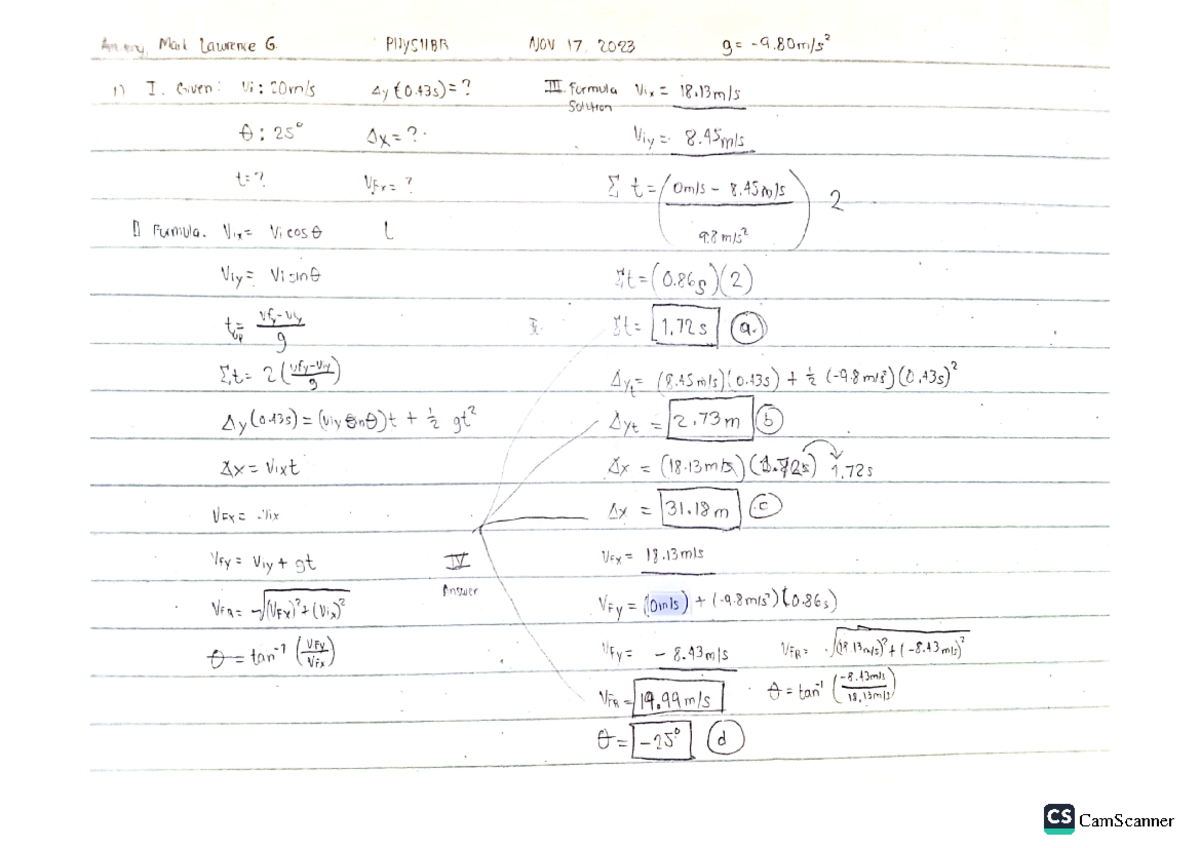 Mark Lawrence G. PHYS11BR NOV 17, 2023 g = -9.80m/s²
1) I. Given: Vi : 20m/s Δy (0.43s) = ?
θ : 25° Δx = ?
t = ? VFr = ?
II Formula. Vix = Vi cos θ
Viy = Vi sinθ
t = Vfy - Viy / g
Σt = 2 (Vfy - Viy / g)
Δy (0.43s) = (Viy sinθ)t + 1/2 gt²
Δx = Vixt
VFx = Vix
VFy = Viy + gt
VFR = √(VFx)² + (Vix)²
θ = tan⁻¹ (VFy / VFx)
III. Formula Solution Vix = 18.13m/s
Viy = 8.45m/s
Σ t = (0m/s - 8.45m/s / 9.8 m/s²) 2
Σt = (0.86s)(2)
Σt = 1.72s a.
Δyt = (8.45m/s)(0.43s) + 1/2 (-9.8m/s²)(0.43s)²
Δyt = 2.73m b
Δx = (18.13m/s) (1.72s) 1.72s
Δx = 31.18m c
IV Answer
VFx = 18.13m/s
VFy = (0m/s) + (-9.8m/s²)(0.86s)
VFy = - 8.43m/s VFR = √(18.13m/s)² + (-8.43m/s)²
VFR = 19.99m/s θ = tan⁻¹ (-8.43m/s / 18.13m/s)
θ = -25° d
CS CamScanner